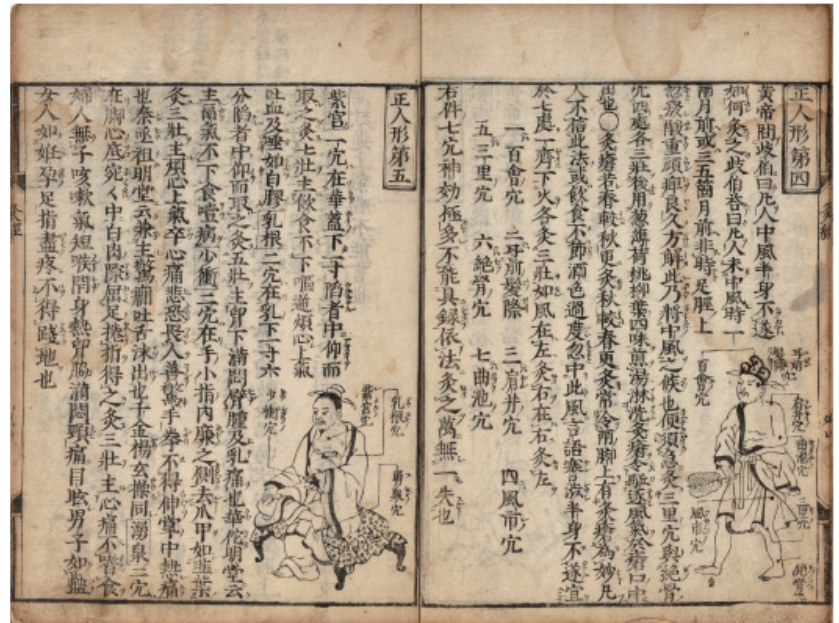 正人形第四
黃帝問歧伯曰凡人中風半身不遂
如何灸之歧伯答曰凡人未中風時一
兩月前或三五箇月前非時足脛上
忽發酸重頑痺良久方解此乃將中風之候也便須急灸三里穴與絕骨
穴四處各三壯後用葱薄荷桃柳葉四味煎湯淋洗灸瘡令驅逐風氣於瘡口中
出也○灸瘡若春較秋更灸秋較春更灸常令兩脚上有灸瘡為妙凡
人不信此法或飲食不節酒色過度忽中此風言語蹇澁半身不遂宜
於七處一齊下火各灸三壯如風在左灸右在右灸左
一百會穴 二耳前髮際 三肩井穴 四風市穴
五三里穴 六絕骨穴 七曲池穴
右件七穴神効極多不能具録依法灸之萬無一失也
百會穴
耳前
肩井穴
曲池穴
三里穴
風市穴
絕骨穴
正人形第五
紫宫一穴在華蓋下一寸陷者中仰而
取之灸七壯主飲食不下嘔逆煩心上氣
吐血及唾如白膠乳根二穴在乳下一寸六
分陷者中仰而取之灸五壯主胷下滿悶臂腫及乳痛也華佗明堂云
主膈氣不下食噎病少衝二穴在手小指内廉之側去爪甲如韮葉
灸三壯主煩心上氣卒心痛悲恐畏人善驚手拳不得伸掌中熱痛
也秦丞祖明堂云兼主驚癎吐舌沫出也千金楊玄操同湧泉二穴
在脚心底宛々中白肉際屈足捲指得之灸三壯主心痛不嗜食
婦人無子咳嗽氣短喉閉身熱胷脇滿悶頸痛目眩男子如蠱
女人如妊孕足指盡疼不得踐地也
紫宫穴
乳根穴
少衝穴
湧泉穴